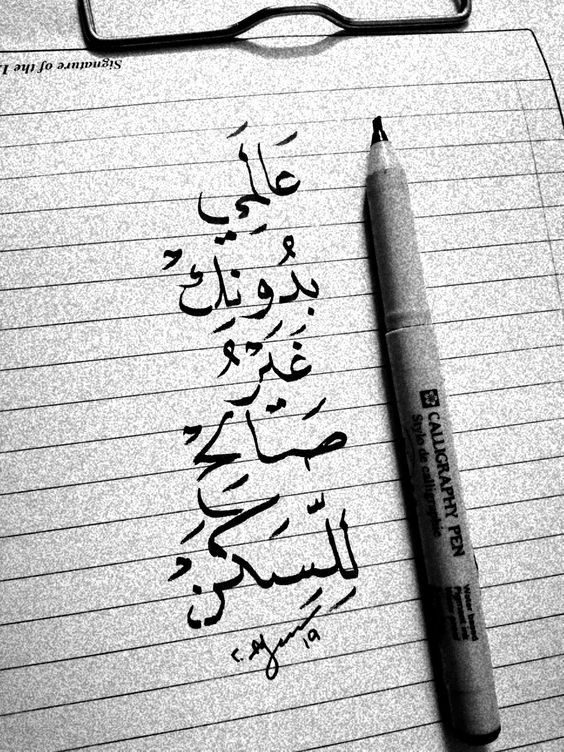 Signature of the
عَالَمِي
بِدُونِكْ
غَيْرُ
صَالِحْ
لِلسَّكَنْ
١٩
CALLIGRAPHY PEN
Stylo de calligraphie
Water based